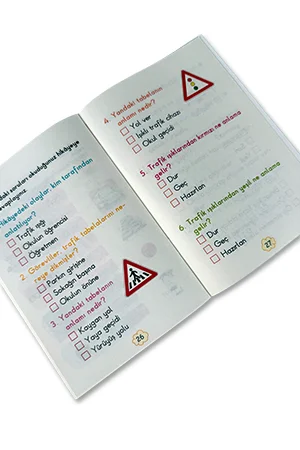 daki soruları okuduğunuz hikâyeye
cevaplayınız.
hikâyedeki olaylar kim tarafından
anlatılıyor?
Trafik ışığı
Okulun öğrencisi
Öğretmen
2. Görevliler, trafik tabelalarını ne-
reye dikmişler?
Parkın girişine
Sokağın başına
Okulun önüne
3. Yandaki tabelanın
anlamı nedir?
Kaygan yol
Yaya geçidi
Yürüyüş yolu
26
4. Yandaki tabelanın
anlamı nedir?
Yol ver
Işıklı trafik cihazı
Okul geçidi
5. Trafik ışıklarından kırmızı ne anlama
gelir?
Dur
Geç
Hazırlan
6. Trafik ışıklarından yeşil ne anlama
gelir?
Dur
Geç
Hazırlan
27